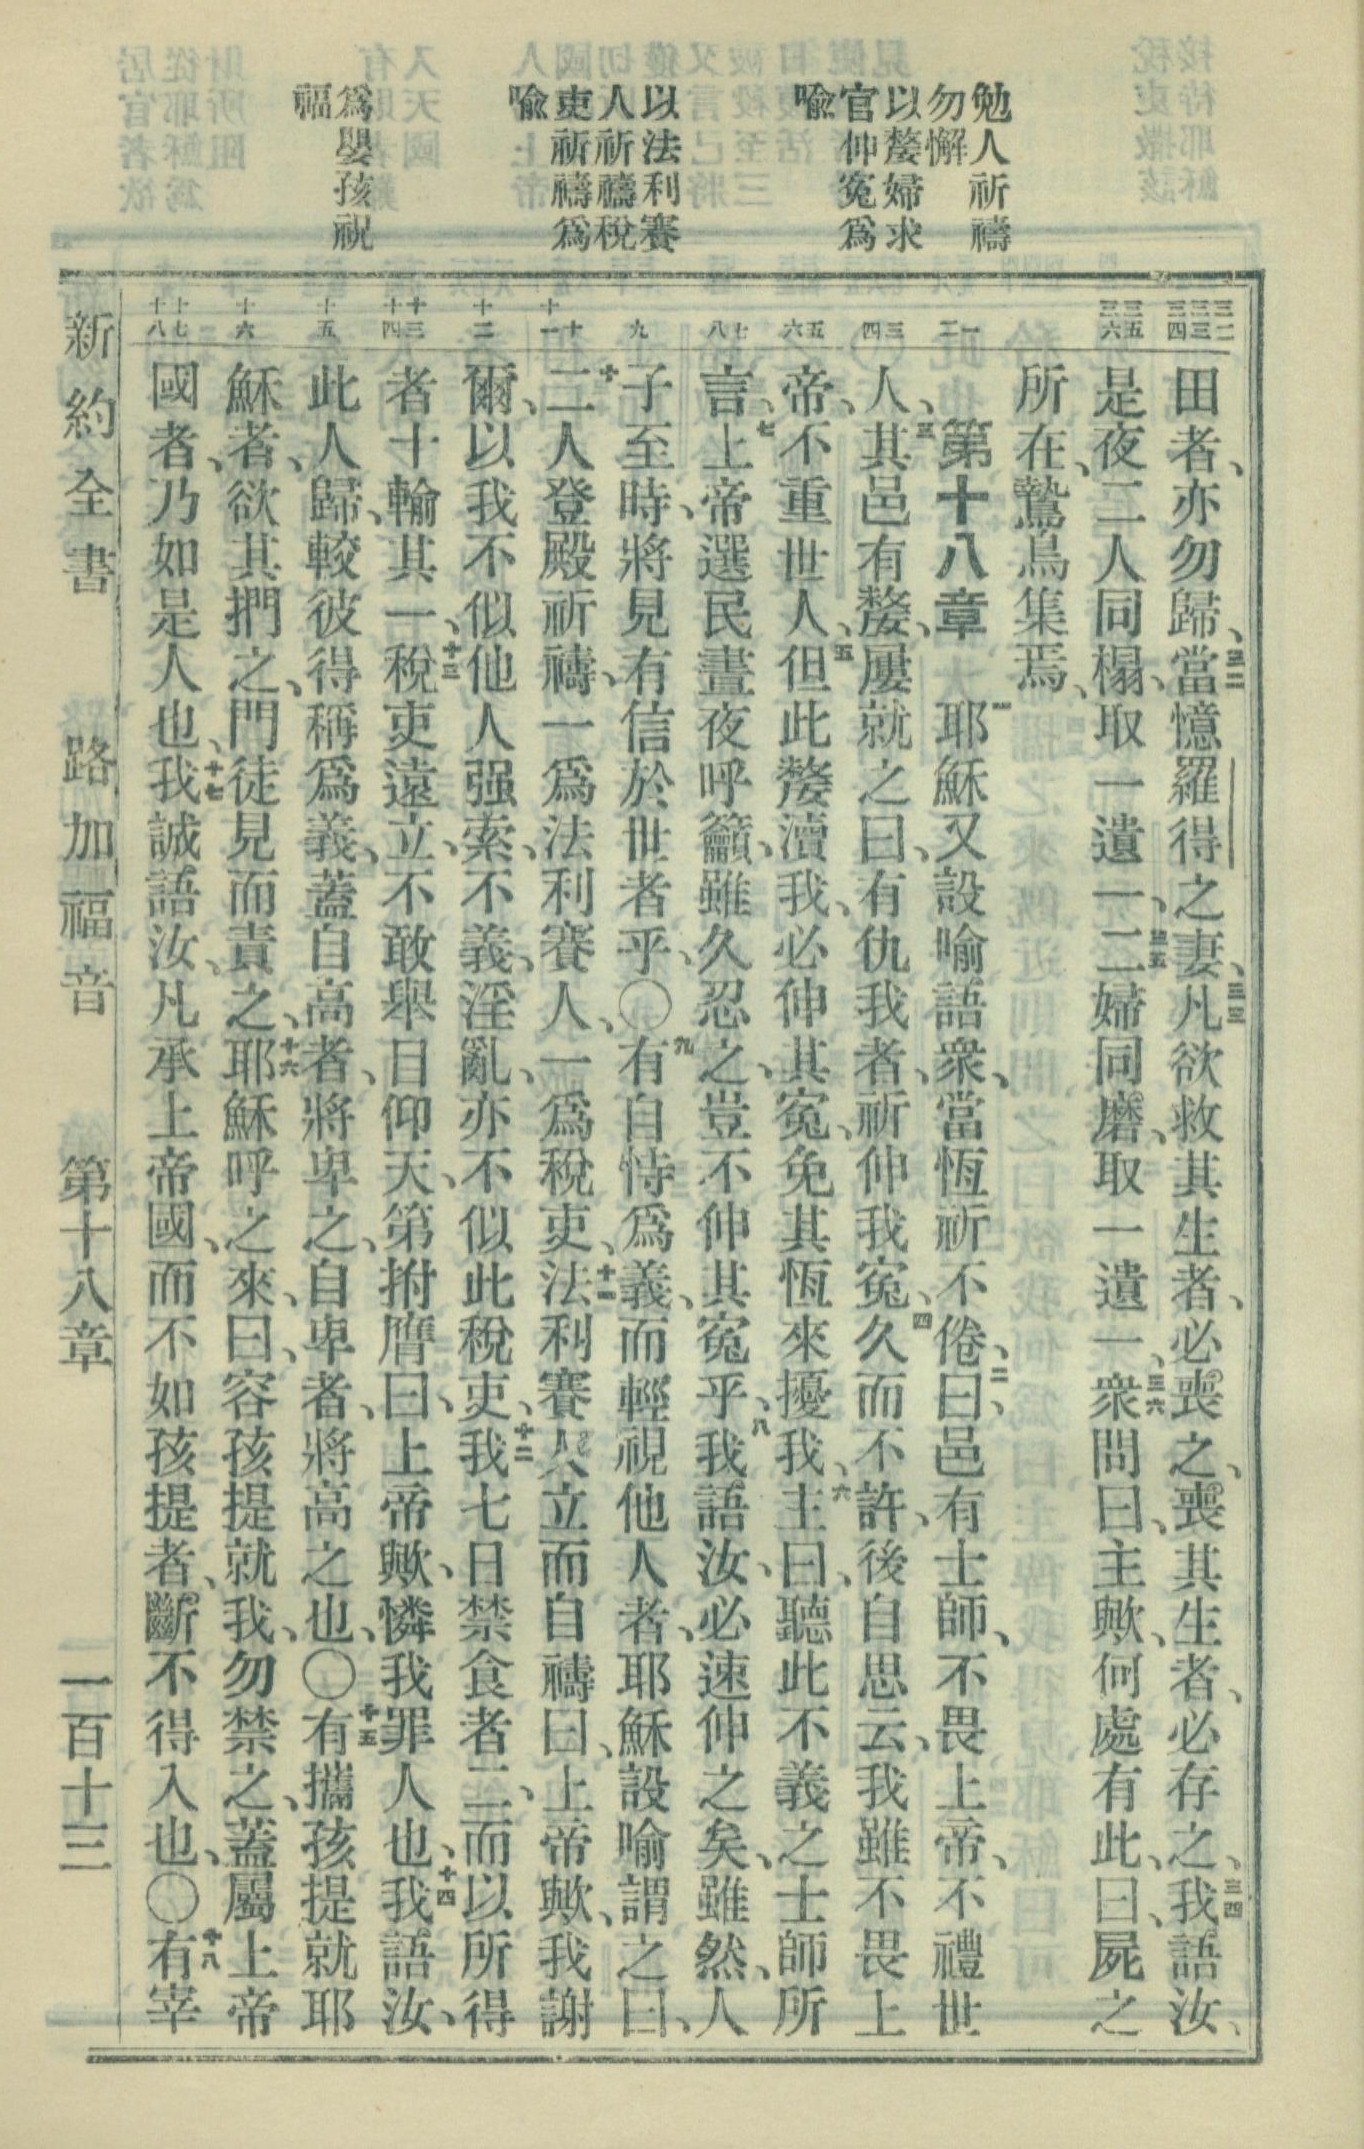 勉人祈禱
勿懈
以嫠婦求
官伸冤爲
喩
以法利賽
人祈禱稅
吏祈禱爲
喩
爲嬰孩祝
福
三二 三三 三四
三五 三六
一 二
三 四
五 六
七 八
九
十 十一
十二
十三 十四
十五
十六
十七 十八
田者、亦勿歸、三二當憶羅得之妻、三三凡欲救其生者、必喪之、喪其生者、必存之、三四我語汝、
是夜二人同榻、取一遺一、三五二婦同磨、取一遺一、三六衆問曰、主歟、何處有此、曰、屍之
所在、鷙鳥集焉、
第十八章 一耶穌又設喻語衆、當恆祈不倦、二曰、邑有士師、不畏上帝、不禮世
人、三其邑有嫠、屢就之曰、有仇我者、祈伸我冤、四久而不許、後自思云、我雖不畏上
帝、不重世人、五但此嫠瀆我、必伸其冤、免其恆來擾我、六主曰、聽此不義之士師所
言、七上帝選民晝夜呼籲、雖久忍之、豈不伸其冤乎、八我語汝、必速伸之矣、雖然、人
子至時、將見有信於世者乎、〇九有自恃爲義、而輕視他人者、耶穌設喻謂之曰、
十二人登殿祈禱、一爲法利賽人、一爲稅吏、十一法利賽人立而自禱曰、上帝歟、我謝
爾、以我不似他人强索、不義、淫亂、亦不似此稅吏、十二我七日禁食者二、而以所得
者十輸其一、十三稅吏遠立、不敢舉目仰天、第拊膺曰、上帝歟、憐我罪人也、十四我語汝、
此人歸、較彼得稱爲義、蓋自高者、將卑之、自卑者、將高之也、〇十五有攜孩提就耶
穌者、欲其捫之、門徒見而責之、十六耶穌呼之來、曰、容孩提就我、勿禁之、蓋屬上帝
國者、乃如是人也、十七我誠語汝、凡承上帝國、而不如孩提者、斷不得入也、〇十八有宰
新約全書 路加福音 第十八章 一百十三